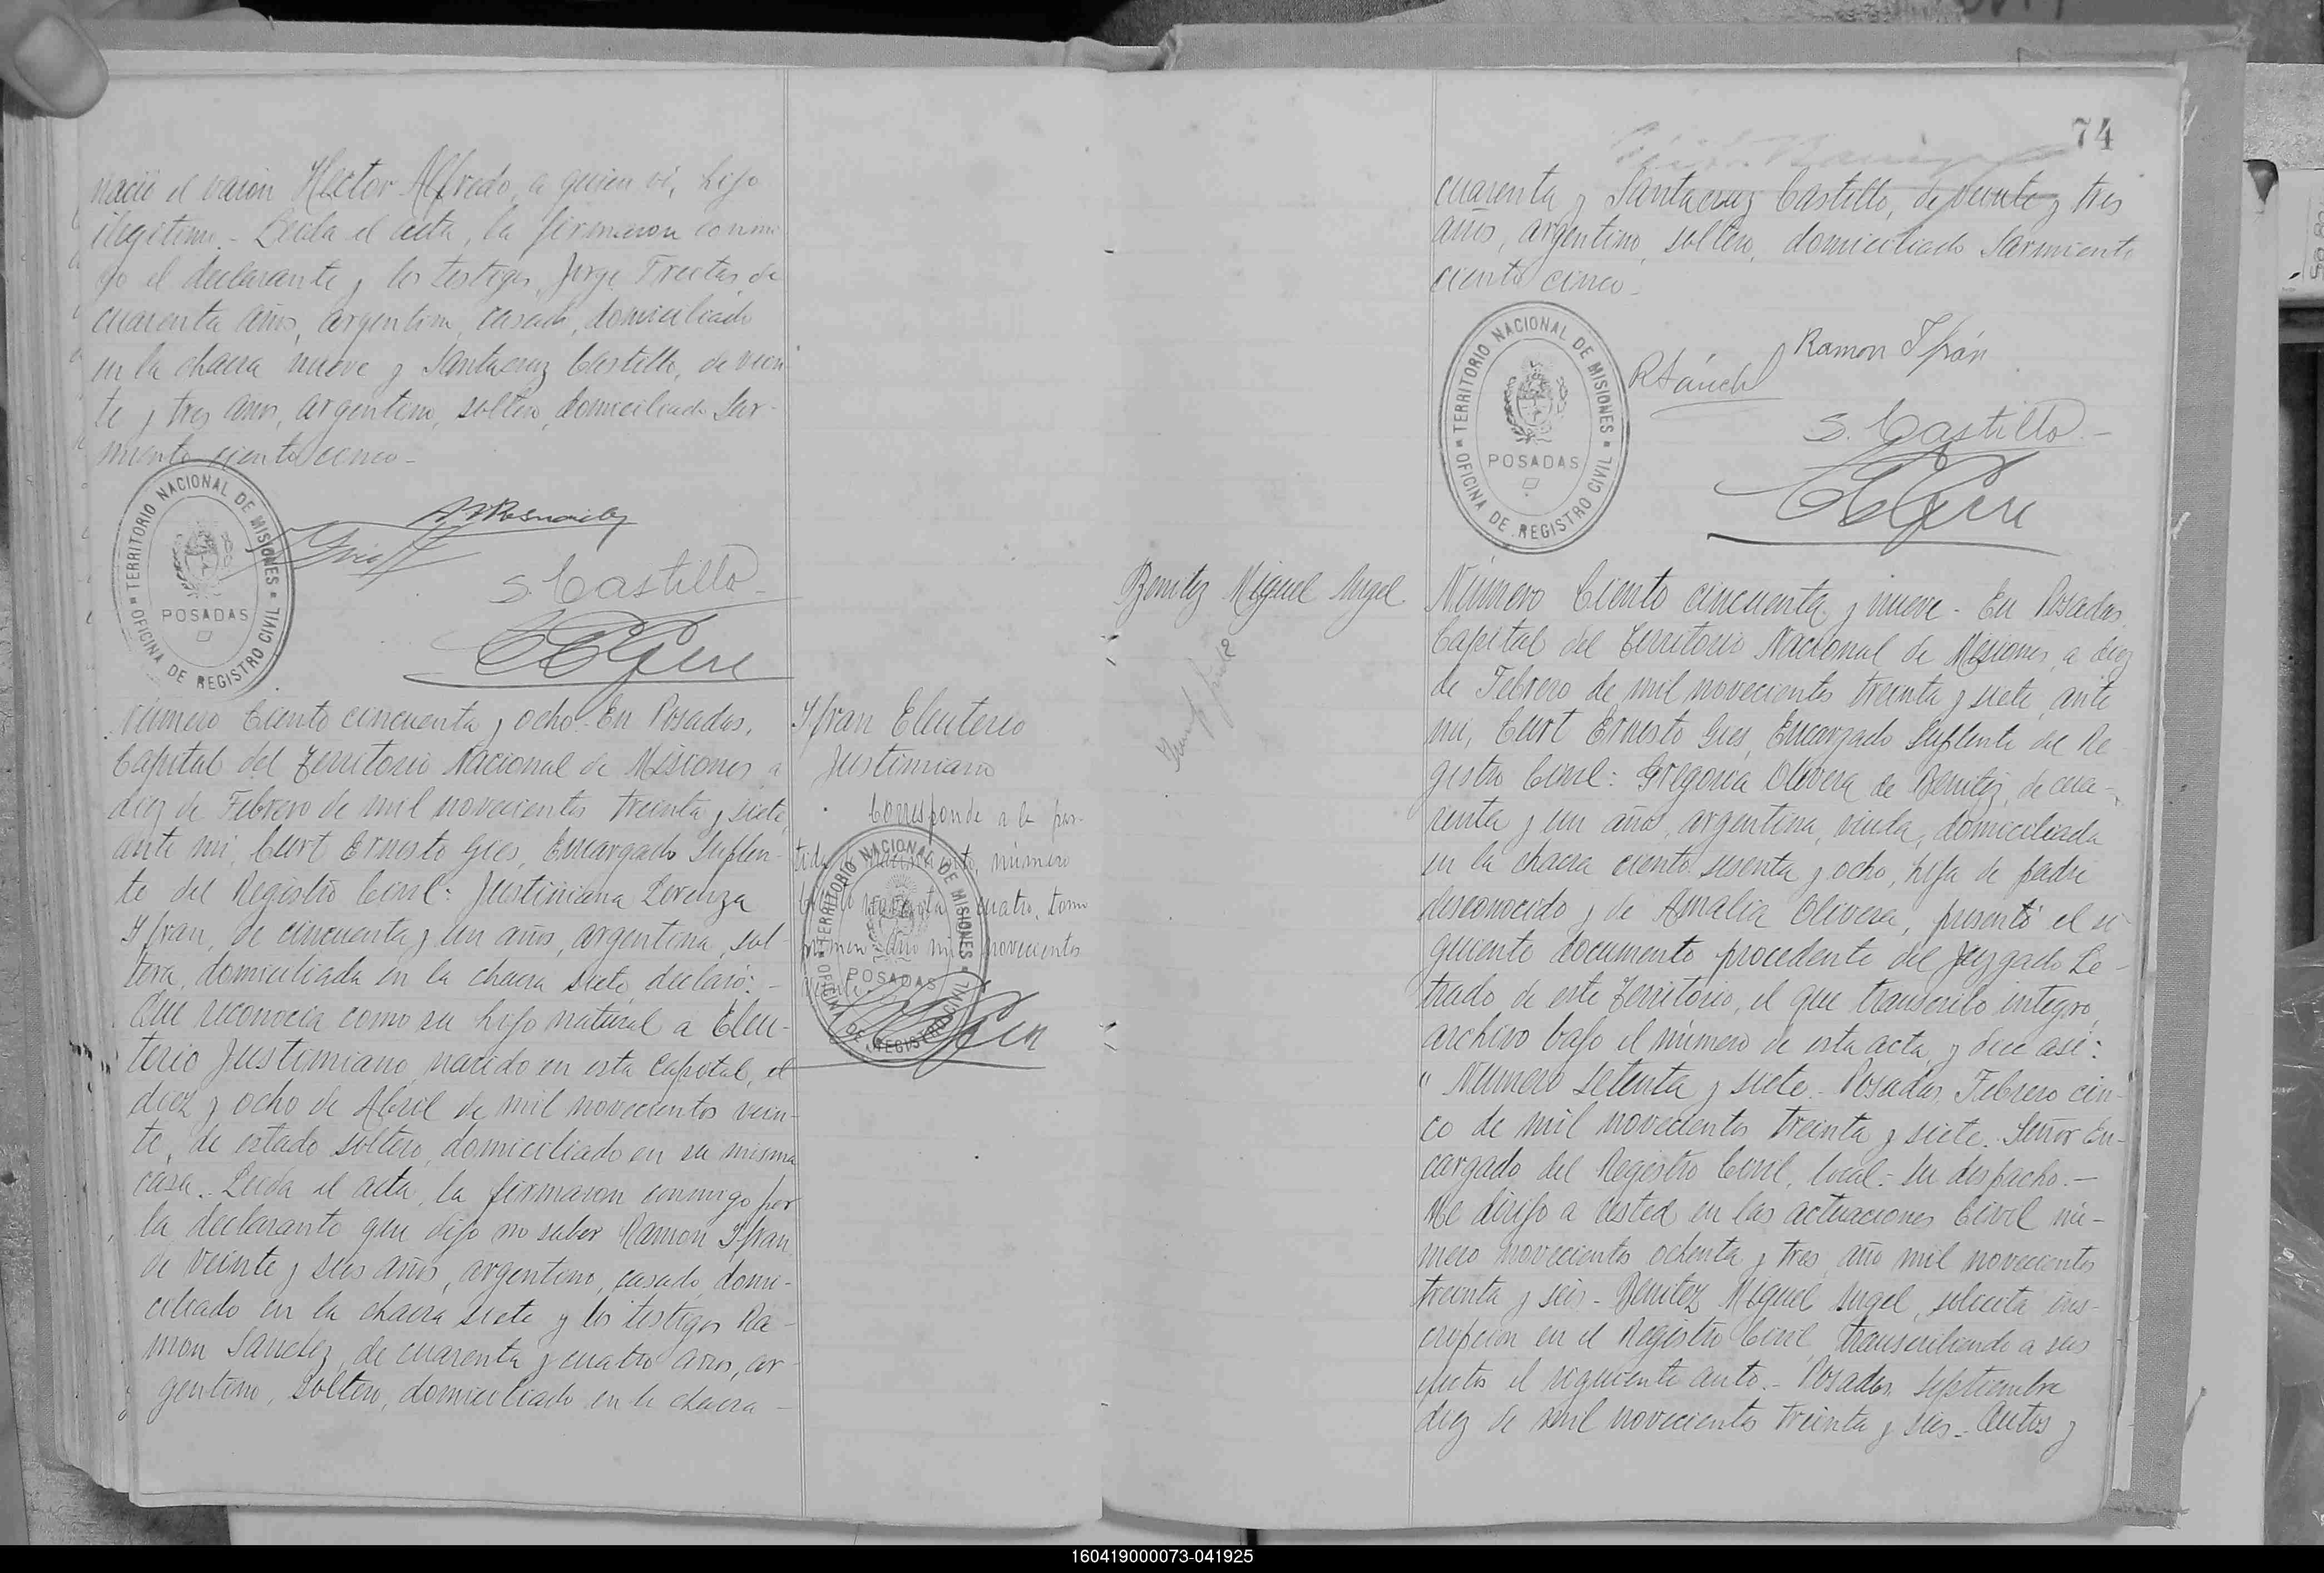 nació el varón Hector Alfredo, a quien ví, hijo
ilegitimo.- Leida el acta, la firmaron conmi
go el declarante y los testigos, Jorge Freitas, de
cuarenta años, argentino, casado, domiciliado
en la chacra nueve y Santacruz Castillo, de vein
te y tres años, argentino, soltero, domiciliado Sar-
miento ciento cinco-
TERRITORIO NACIONAL DE MISIONES
POSADAS
OFICINA DE REGISTRO CIVIL
S. Castillo
Número Ciento cincuenta y ocho- En Posadas,
Capital del Territorio Nacional de Misiones a
diez de Febrero de mil novecientos treinta y siete,
ante mi, Curt Ernesto Gies, Encargado Suplen-
te del Registro Civil: Justiniana Lorenza
Ifran, de cincuenta y un años, argentina, sol-
tera, domiciliada en la chacra siete, declaró:-
Que reconocia como su hijo natural a Eleu-
terio Justiniano, nacido en esta capital, el
diez y ocho de Abril de mil novecientos vein-
te, de estado soltero, domiciliado en su misma
casa.- Leida el acta, la firmaron conmigo por
la declarante que dijo no saber Ramon Ifran
de veinte y seis años, argentino, casado, domi-
ciliado en la chacra siete y los testigos Ra-
mon Sanchez, de cuarenta y cuatro años, ar-
gentino, soltero, domiciliado en la chacra -
Ifran Eleuterio
Justiniano
Corresponde a la par-
tida de nacimiento, número
noventa cuatro, tomo
primero año mil novecientos
veinte
TERRITORIO NACIONAL DE MISIONES
POSADAS
OFICINA DE REGISTRO CIVIL
74
cuarenta y Santacruz Castillo, de veinte y tres
años, argentino, soltero, domiciliado Sarmiento
ciento cinco-
TERRITORIO NACIONAL DE MISIONES
POSADAS
OFICINA DE REGISTRO CIVIL
Ramon Ifrán
R Sánchez
S. Castillo.-
Benitez Miguel Angel
Número Ciento cincuenta y nueve- En Posadas,
Capital del Territorio Nacional de Misiones, a diez
de Febrero de mil novecientos treinta y siete, ante
mi, Curt Ernesto Gies, Encargado Suplente del Re
gistro Civil: Gregoria Olivera de Benitez, de cua-
renta y un años, argentina, viuda, domiciliada
en la chacra ciento sesenta y ocho, hija de padre
desconocido y de Amalia Olivera, presentó el si
guiente documento procedente del Juzgado Le-
trado de este Territorio, el que transcribo integro,
archivo bajo el número de esta acta y dice asi:
" Número Setenta y siete.- Posadas, Febrero cin-
co de mil novecientos treinta y siete. Señor En-
cargado del Registro Civil, local: Su despacho.-
Me dirijo a usted en las actuaciones Civil nú-
mero novecientos ochenta y tres, año mil novecientos
treinta y seis- Benitez Miguel Angel, solicita ins-
cripcion en el Registro Civil, transcribiendo a sus
efectos el siguiente auto.- Posadas, Septiembre
diez de mil novecientos treinta y seis.- Autos y
160419000073-041925